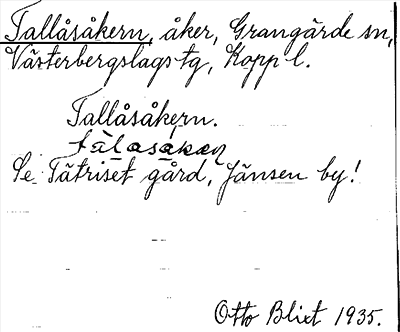 Tallåsåkern, åker, Grangärde sn,
Västerbergslags tg, Kopp l.
Tallåsåkern.
Se Tätriset gård, Jänsen by!
Otto Blixt 1935.